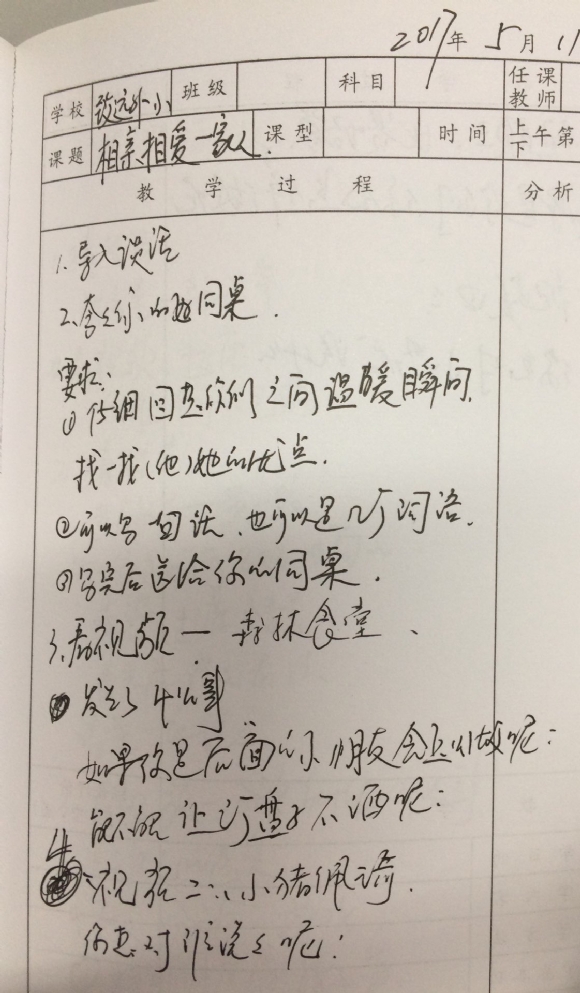 2017年 5月 11
学校 致远外小 班级 科目 任课教师
课题 相亲相爱一家人 课型 时间 上下午第
教 学 过 程 分析
1.导入谈话
2.夸夸你的同桌.
要求:
①仔细回想你们之间温暖瞬间,
找一找(他)她的优点.
②可以写一句话,也可以是几个词语.
③写完后送给你的同桌.
3.看视频一 森林食堂、
发生了什么事
如果你是后面的小朋友会怎么做呢:
能不能让盘子不洒呢:
4 视频二:小猪佩奇.
你想对谁说 呢: